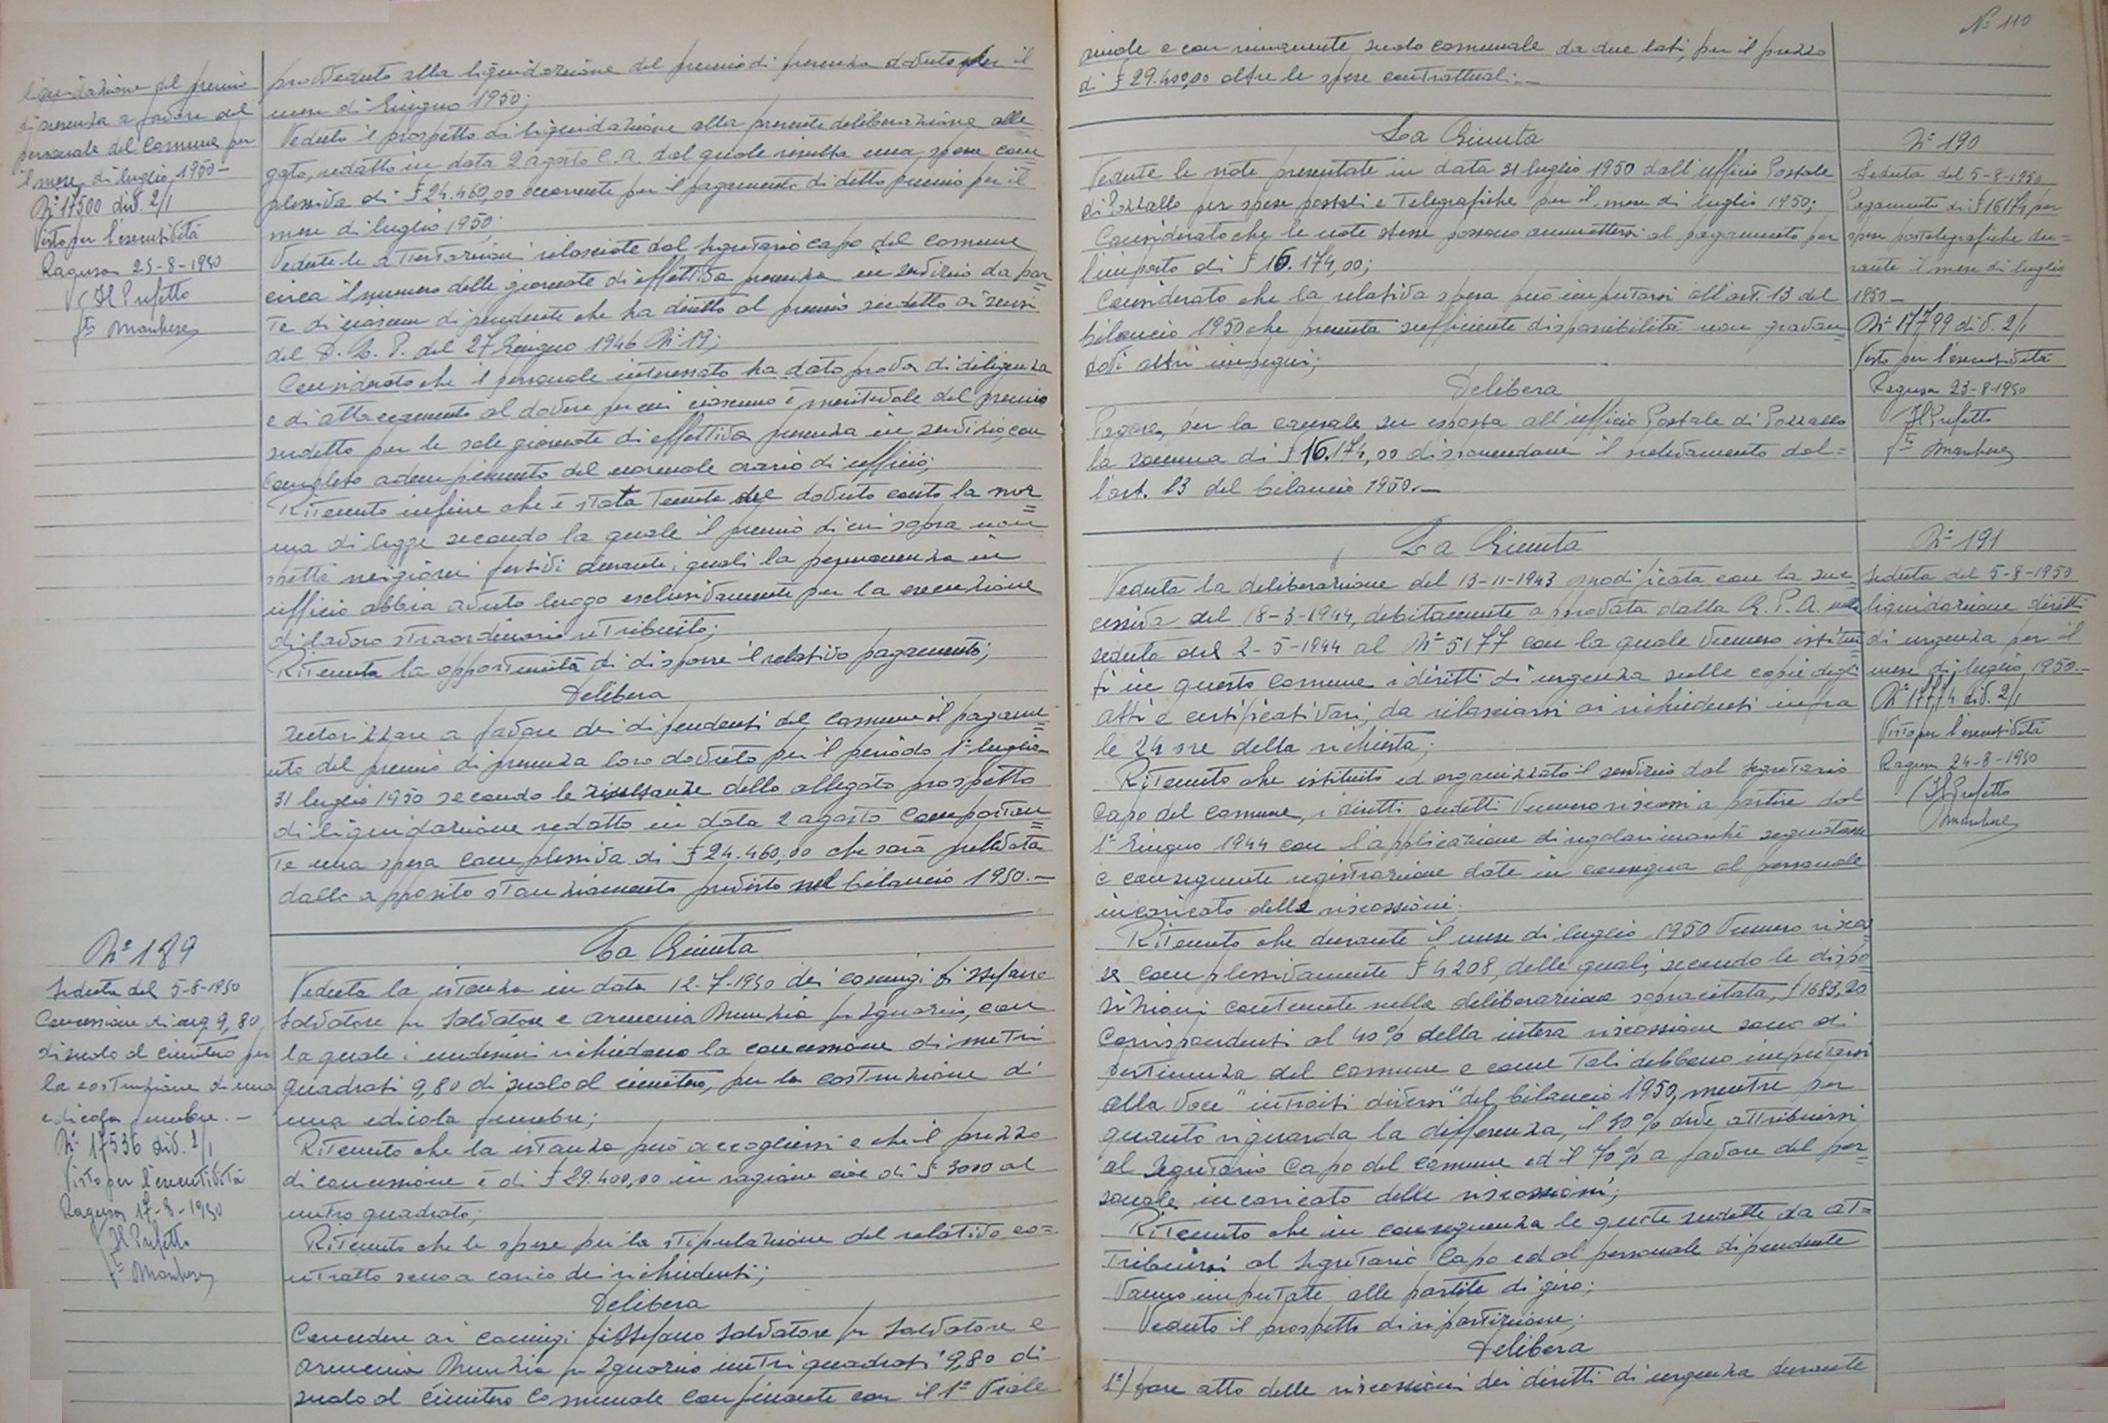 liquidazione del premio
di presenza a favore del
personale del Comune per
il mese di luglio 1950-
Nº 17500 div. 2/1
Visto per l'esecutività
Ragusa 25-8-1950
Il Prefetto
provveduto alla liquidazione del premio di presenza dovuto per il
mese di Giugno 1950;
Veduto il prospetto di liquidazione alla presente deliberazione alle=
gato, redatto in data 2 agosto c.a. dal quale risulta una spesa com=
plessiva di £ 24.460,00 occorrente per il pagamento di detto premio per il
mese di luglio 1950;
Vedute le attestazioni rilasciate dal Segretario capo del Comune
circa il numero delle giornate di effettiva presenza in servizio da par=
te di ciascun dipendente che ha diritto al premio sudetto ai sensi
del D. L. P. del 27 Giugno 1946 Nº 19;
Considerato che il personale interessato ha dato prova di diligenza
e di attaccamento al dovere per cui ciascuno è meritevole del premio
sudetto per le sole giornate di effettiva presenza in servizio, con
completo adempimento del normale orario di ufficio;
Ritenuto infine che è stata tenuta del dovuto conto la nor=
ma di legge secondo la quale il premio di cui sopra non
spetta nei giorni festivi durante i quali la permanenza in
ufficio abbia avuto luogo esclusivamente per la esecuzione
di lavoro straordinario retribuito;
Ritenuta la opportunità di disporre il relativo pagamento;
Delibera
autorizzare a favore dei dipendenti del comune il pagame=
nto del premio di presenza loro dovuto per il periodo 1º luglio
31 luglio 1950 secondo le risultanze dello allegato prospetto
di liquidazione redatto in data 2 agosto comportan=
te una spesa complessiva di £ 24.460,00 che sarà prelevata
dallo apposito stanziamento previsto nel bilancio 1950.-
Nº 189
Seduta del 5-8-1950
Concessione di mq 9,80
di suolo al cimitero per
la costruzione di una
edicola funebre. -
Nº 17536 div. 2/1
Visto per l'esecutività
Ragusa 17-8-1950
Il Prefetto
La Giunta
Veduta la istanza in data 12-7-1950 dei coniugi Distefano
Salvatore fu Salvatore e Armenia Nunzia fu Ignazio, con
la quale i medesimi richiedono la concessione di metri
quadrati 9,80 di suolo al cimitero, per la costruzione di
una edicola funebre;
Ritenuto che la istanza può accogliersi e che il prezzo
di concessione è di £ 29.400,00 in ragione cioè di £ 3000 al
metro quadrato;
Ritenuto che le spese per la stipulazione del relativo co=
ntratto sono a carico dei richiedenti;
Delibera
Concedere ai coniugi Distefano Salvatore fu Salvatore e
Armenia Nunzia fu Ignazio metri quadrati 9,80 di
suolo al cimitero Comunale confinante con il 1º Viale
Nº 110
e con rimanente suolo comunale da due lati, per il prezzo
di £ 29.400,00 oltre le spese contrattuali.-
La Giunta
Vedute le note presentate in data 31 luglio 1950 dall'ufficio Postale
di Pozzallo per spese postali e telegrafiche per il mese di luglio 1950;
Considerato che le note stesse possono ammettersi al pagamento per
l'importo di £ 16.174,00;
Considerato che la relativa spesa può imputarsi all'art. 13 del
bilancio 1950 che presenta sufficiente disponibilità non gravan=
dovi altri impegni;
Delibera
Pagare, per la causale su esposta all'ufficio Postale di Pozzallo
la somma di £ 16.174,00 disponendone il prelevamento dal=
l'art. 13 del bilancio 1950.-
Nº 190
Seduta del 5-8-1950
Pagamento di £ 16174 per
spese postelegrafiche du=
rante il mese di luglio
1950-
Nº 17799 div. 2/1
Visto per l'esecutività
Ragusa 23-8-1950
Il Prefetto
La Giunta
Veduta la deliberazione del 13-11-1943 modificata con la suc=
cessiva del 18-3-1944, debitamente approvata dalla G. P. A. nella
seduta del 2-5-1944 al Nº 5177 con la quale vennero istitui=
ti in questo comune i diritti di urgenza sulle copie degli
atti e certificati vari, da rilasciarsi ai richiedenti infra
le 24 ore della richiesta;
Ritenuto che istituito ed organizzato il servizio dal Segretario
Capo del comune, i diritti sudetti vennero riscossi a partire dal
1º Giugno 1944 con l'applicazione di regolari marche segnatasse
e conseguente registrazione date in consegna al personale
incaricato delle riscossioni;
Ritenuto che durante il mese di luglio 1950 vennero riscos=
se complessivamente £ 4208, delle quali, secondo le dispo=
sizioni contenute nella deliberazione sopracitata, £ 1683,20
corrispondenti al 40% della intera riscossione sono di
pertinenza del comune e come tali debbono imputarsi
alla voce "introiti diversi" del bilancio 1950, mentre per
quanto riguarda la differenza, il 30% deve attribuirsi
al Segretario Capo del comune ed il 70% a favore del per=
sonale incaricato delle riscossioni;
Ritenuto che in conseguenza le quote sudette da at=
tribuirsi al Segretario Capo ed al personale dipendente
vanno imputate alle partite di giro;
Veduto il prospetto di ripartizione;
Delibera
1º) fare atto delle riscossioni dei diritti di urgenza durante
Nº 191
Seduta del 5-8-1950
liquidazione diritti
di urgenza per il
mese di luglio 1950.-
Nº 17774 div. 2/1
Visto per l'esecutività
Ragusa 24-8-1950
Il Prefetto